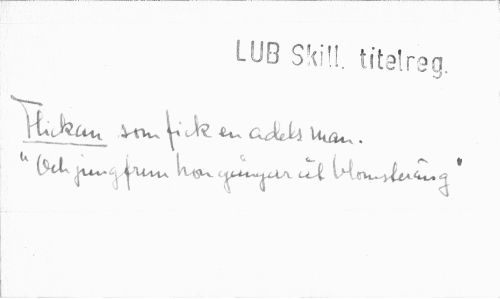 LUB Skill. titelreg.
Flickan som fick en adelsman.
"Och jungfrun hon gångar åt blomsteräng"